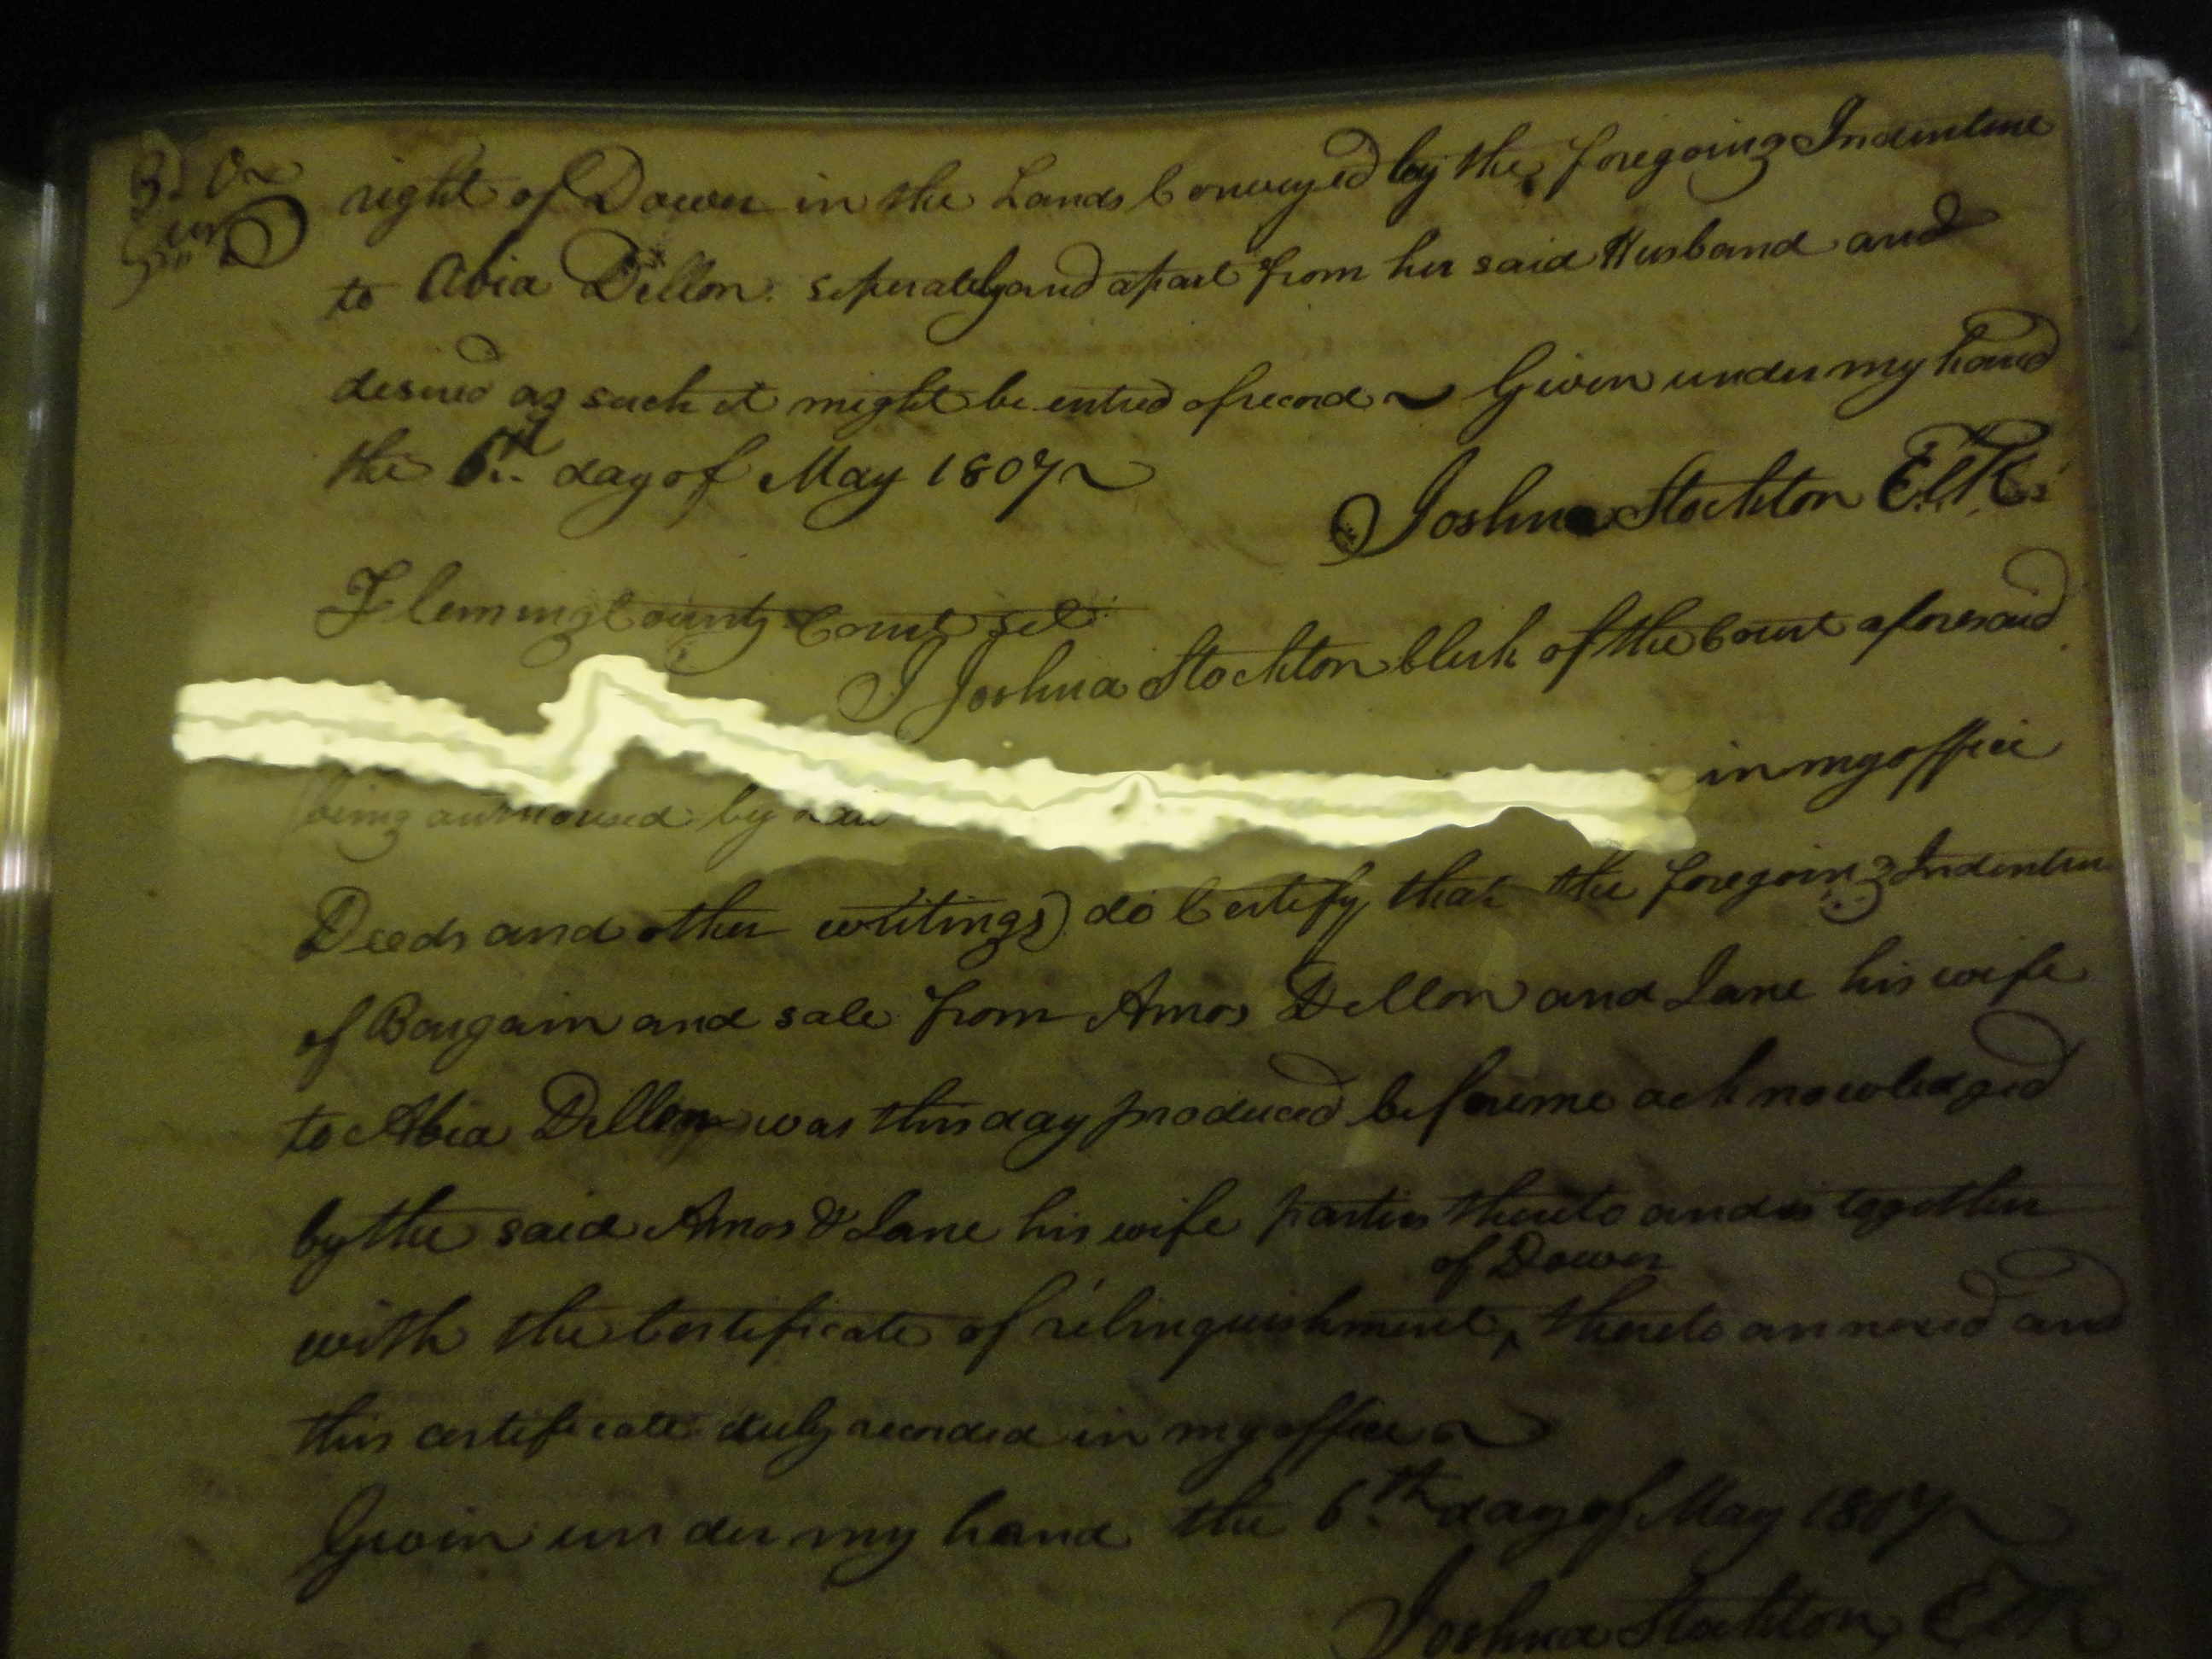 right of Dower in the Lands Conveyed by the foregoing Indenture
to Abia Dillon seperately and apart from her said Husband and
desired as such it might be entred of record ~ Given under my hand
the 6th day of May 1807 ~
Joshua Stockton
Fleming County Court Sct
I Joshua Stockton Clerk of the Court aforesaid
in my office
being authorised by Law
Deeds and other writings) do Certify that the foregoing Indentur
of Bargain and sale from Amos Dillon and Jane his wife
to Abia Dillon was this day produced before me acknowledged
by the said Amos & Jane his wife parties thereto and is together
of Dower
with the Certificate of relinquishment ^ thereto annexed and
this certificate duly recorded in my office ~
Given under my hand the 6th day of May 1807 ~
Joshua Stockton